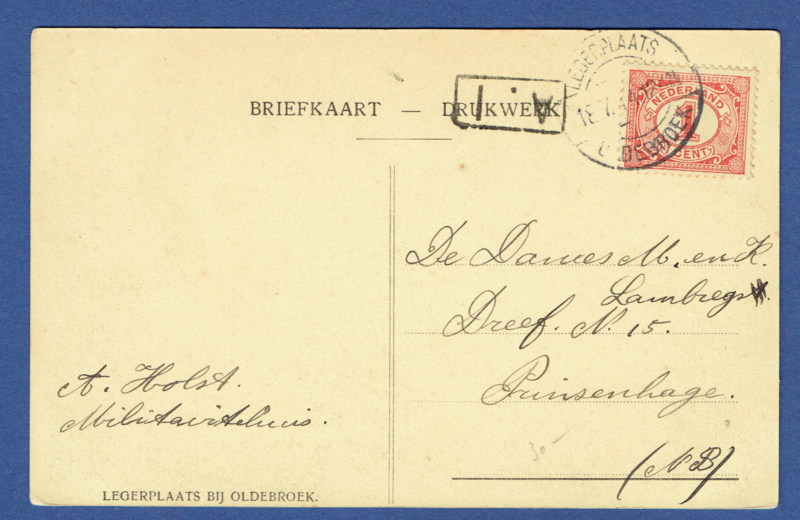 BRIEFKAART — DRUKWERK
LEGERPLAATS
OLDEBROEK
NEDERLAND
1
CENT
De Dames M. en K.
Lambregts.
Dreef. N. 15.
Prinsenhage.
(N B)
A. Holst.
Militairtehuis.
30-
LEGERPLAATS BIJ OLDEBROEK.